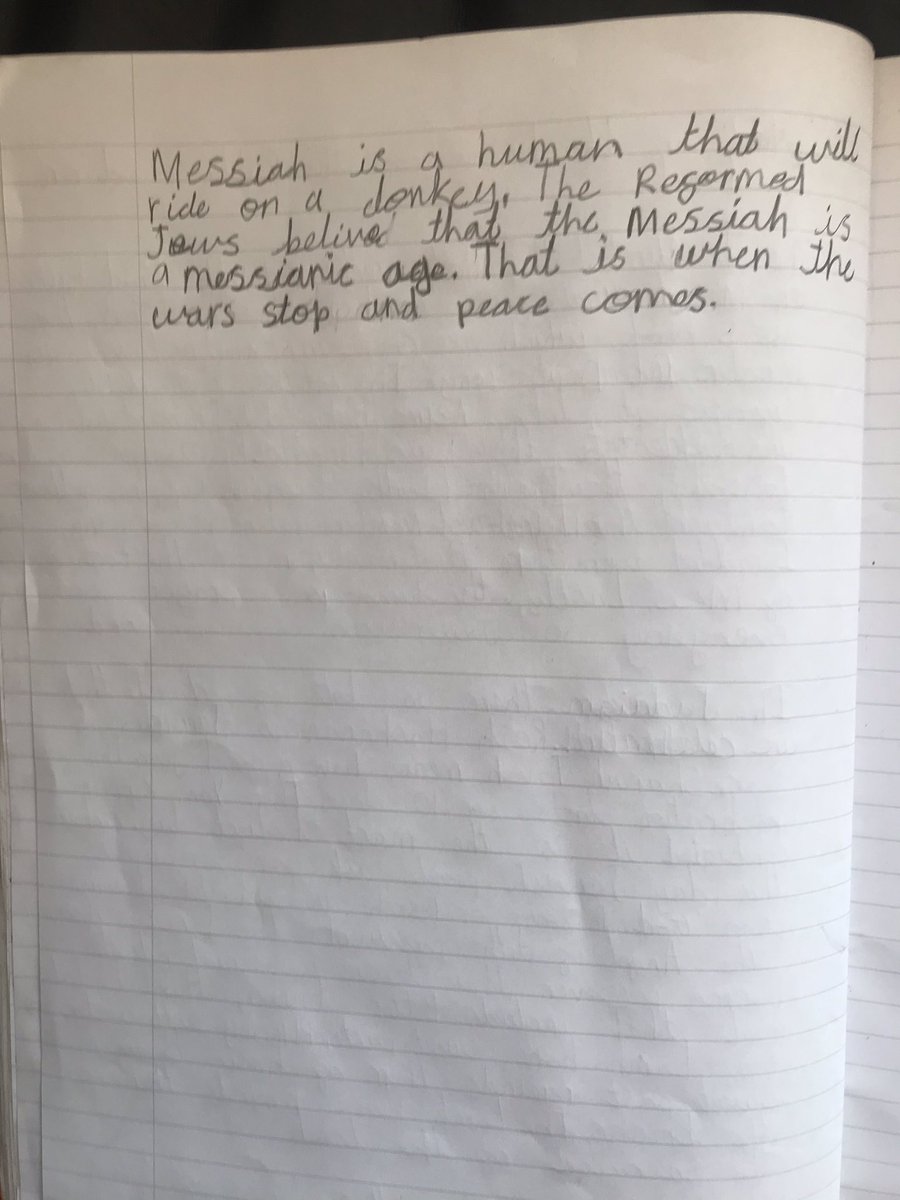 Messiah is a human that will
ride on a donkey. The Reformed
Jews belive that the Messiah is
a messianic age. That is when the
wars stop and peace comes.